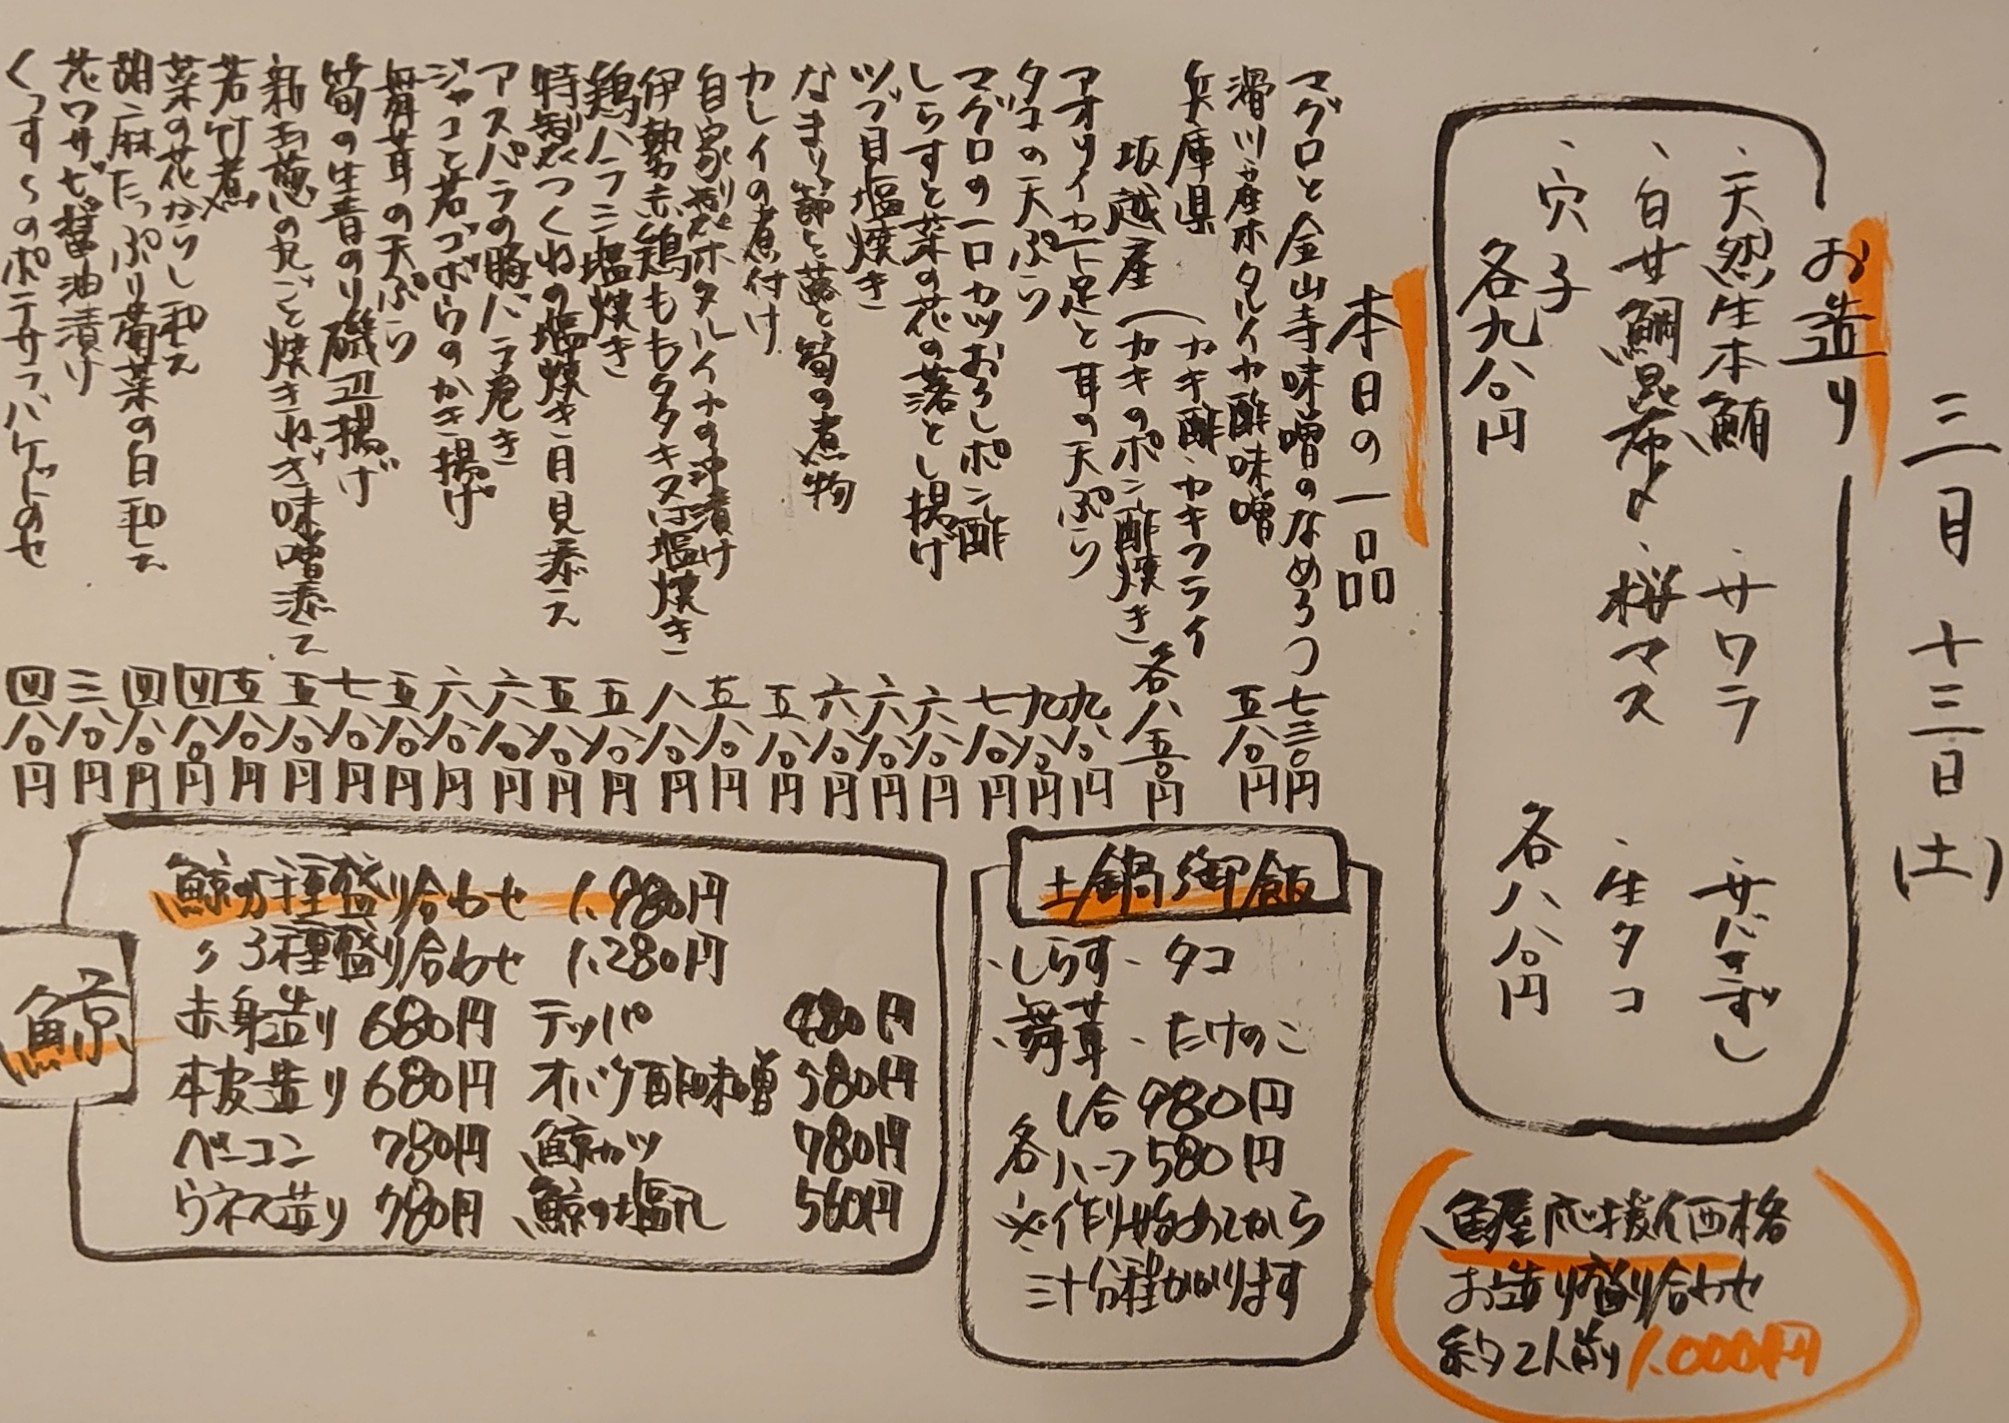 三月十三日(土)
お造り
・天然生本鮪 ・サワラ ・サバきずし
・白甘鯛昆布〆 ・桜マス ・生タコ
・穴子
各九八〇円 各八八〇円
魚屋応援価格
お造り盛り合わせ
約2人前 1,000円
本日の一品
マグロと金山寺味噌のなめろう 七三〇円
滑川産ホタルイカ酢味噌 五八〇円
兵庫県
坂越産
(カキ酢・カキフライ
(カキのポン酢焼き 各八五〇円
アオリイカ下足と耳の天ぷら 九八〇円
タコの天ぷら 九八〇円
マグロの一口カツおろしポン酢 七八〇円
しらすと菜の花の落とし揚げ 六八〇円
ツブ貝塩焼き 六八〇円
なまり節と蕗と筍の煮物 六八〇円
カレイの煮付け 五八〇円
自家製ホタルイカの沖漬け 五八〇円
伊勢赤鶏ももタタキ又は塩焼き 八八〇円
鶏ハラミ塩焼き 五八〇円
特製つくねの塩焼き月見添え 五八〇円
アスパラの豚バラ巻き 六八〇円
ジャコと若ゴボウのかき揚げ 六八〇円
舞茸の天ぷら 五八〇円
筍の生青のり磯辺揚げ 七八〇円
新玉葱の丸ごと焼きねぎ味噌添え 五八〇円
若竹煮 五八〇円
菜の花からし和え 四八〇円
胡麻たっぷり菊菜の白和え 四八〇円
花ワサビ醤油漬け 三八〇円
くっすらのポテサラバケットのせ 四八〇円
土鍋御飯
・しらす ・タコ
・舞茸 ・たけのこ
各
1合 980円
ハーフ 580円
※作り始めてから
三十分程かかります
鯨
鯨5種盛り合わせ 1,980円
〃3種盛り合わせ 1,280円
赤身造り 680円 テッパ 480円
本皮造り 680円 オバケ酢味噌 580円
ベーコン 780円 鯨カツ 780円
ウネス造り 780円 鯨の塩タレ 560円